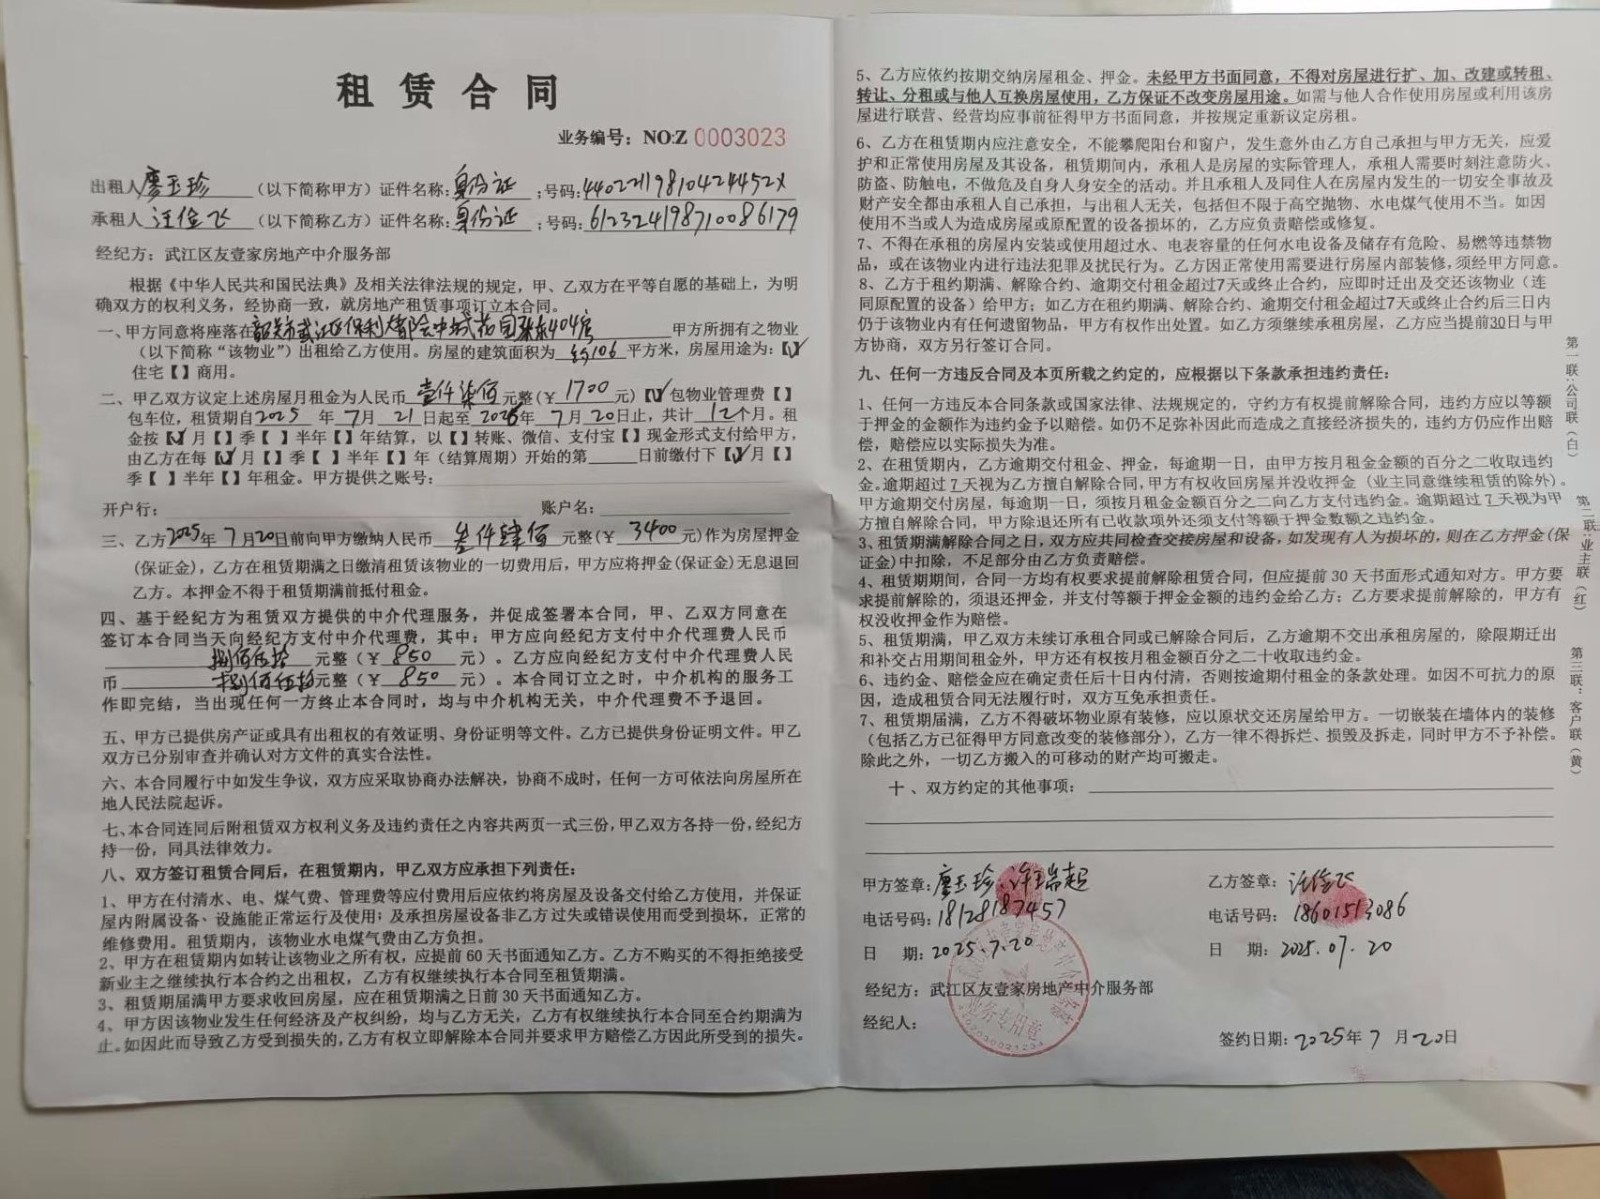 租赁合同
业务编号：NO:Z 0003023
出租人 廖玉珍 （以下简称甲方）证件名称：身份证；号码：44022119810424452X
承租人 汪俭飞 （以下简称乙方）证件名称：身份证；号码：612324198710086179
经纪方：武江区友壹家房地产中介服务部
根据《中华人民共和国民法典》及相关法律法规的规定，甲、乙双方在平等自愿的基础上，为明
确双方的权利义务，经协商一致，就房地产租赁事项订立本合同。
一、甲方同意将座落在 韶关市武江区保利大都会中城花园 404房 甲方所拥有之物业
（以下简称“该物业”）出租给乙方使用。房屋的建筑面积为 约106 平方米，房屋用途为：【√】
住宅【 】商用。
二、甲乙双方议定上述房屋月租金为人民币 壹仟柒佰 元整(￥ 1700 元)【√】包物业管理费【 】
包车位，租赁期自2025 年 7月 21日起至 2026年 7月20日止，共计 12个月。租
金按【√】月【 】季【 】半年【 】年结算，以【 】转账、微信、支付宝【 】现金形式支付给甲方，
由乙方在每【√】月【 】季【 】半年【 】年（结算周期）开始的第 日前缴付下【√】月【 】
季【 】半年【 】年租金。甲方提供之账号：
开户行： 账户名：
三、乙方2025年 7月20日前向甲方缴纳人民币 叁仟肆佰 元整(￥ 3400 元)作为房屋押金
(保证金)，乙方在租赁期满之日缴清租赁该物业的一切费用后，甲方应将押金(保证金)无息退回
乙方。本押金不得于租赁期满前抵付租金。
四、基于经纪方为租赁双方提供的中介代理服务，并促成签署本合同，甲、乙双方同意在
签订本合同当天向经纪方支付中介代理费，其中：甲方应向经纪方支付中介代理费人民币
捌佰伍拾 元整（￥ 850 元）。乙方应向经纪方支付中介代理费人民
币 捌佰伍拾元整（￥ 850 元）。本合同订立之时，中介机构的服务工
作即完结，当出现任何一方终止本合同时，均与中介机构无关，中介代理费不予退回。
五、甲方已提供房产证或具有出租权的有效证明、身份证明等文件。乙方已提供身份证明文件。甲乙
双方已分别审查并确认对方文件的真实合法性。
六、本合同履行中如发生争议，双方应采取协商办法解决，协商不成时，任何一方可依法向房屋所在
地人民法院起诉。
七、本合同连同后附租赁双方权利义务及违约责任之内容共两页一式三份，甲乙双方各持一份，经纪方
持一份，同具法律效力。
八、双方签订租赁合同后，在租赁期内，甲乙双方应承担下列责任：
1、甲方在付清水、电、煤气费、管理费等应付费用后应依约将房屋及设备交付给乙方使用，并保证
屋内附属设备、设施能正常运行及使用；及承担房屋设备非乙方过失或错误使用而受到损坏，正常的
维修费用。租赁期内，该物业水电煤气费由乙方负担。
2、甲方在租赁期内如转让该物业之所有权，应提前60天书面通知乙方。乙方不购买的不得拒绝接受
新业主之继续执行本合约之出租权，乙方有权继续执行本合同至租赁期满。
3、租赁期届满甲方要求收回房屋，应在租赁期满之日前30天书面通知乙方。
4、甲方因该物业发生任何经济及产权纠纷，均与乙方无关，乙方有权继续执行本合同至合约期满为
止。如因此而导致乙方受到损失的，乙方有权立即解除本合同并要求甲方赔偿乙方因此所受到的损失。
5、乙方应依约按期交纳房屋租金、押金。未经甲方书面同意，不得对房屋进行扩、加、改建或转租、
转让、分租或与他人互换房屋使用，乙方保证不改变房屋用途。如需与他人合作使用房屋或利用该房
屋进行联营、经营均应事前征得甲方书面同意，并按规定重新议定房租。
6、乙方在租赁期内应注意安全，不能攀爬阳台和窗户，发生意外由乙方自己承担与甲方无关，应爱
护和正常使用房屋及其设备，租赁期间内，承租人是房屋的实际管理人，承租人需要时刻注意防火、
防盗、防触电，不做危及自身人身安全的活动。并且承租人及同住人在房屋内发生的一切安全事故及
财产安全都由承租人自己承担，与出租人无关，包括但不限于高空抛物、水电煤气使用不当。如因
使用不当或人为造成房屋或原配置的设备损坏的，乙方应负责赔偿或修复。
7、不得在承租的房屋内安装或使用超过水、电表容量的任何水电设备及储存有危险、易燃等违禁物
品，或在该物业内进行违法犯罪及扰民行为。乙方因正常使用需要进行房屋内部装修，须经甲方同意。
8、乙方于租约期满、解除合约、逾期交付租金超过7天或终止合约，应即时迁出及交还该物业（连
同原配置的设备）给甲方；如乙方在租约期满、解除合约、逾期交付租金超过7天或终止合约后三日内
仍于该物业内有任何遗留物品，甲方有权作出处置。如乙方须继续承租房屋，乙方应当提前30日与甲
方协商，双方另行签订合同。
九、任何一方违反合同及本页所载之约定的，应根据以下条款承担违约责任：
1、任何一方违反本合同条款或国家法律、法规规定的，守约方有权提前解除合同，违约方应以等额
于押金的金额作为违约金予以赔偿。如仍不足弥补因此而造成之直接经济损失的，违约方仍应作出赔
偿，赔偿应以实际损失为准。
2、在租赁期内，乙方逾期交付租金、押金，每逾期一日，由甲方按月租金金额的百分之二收取违约
金。逾期超过 7 天视为乙方擅自解除合同，甲方有权收回房屋并没收押金（业主同意继续租赁的除外）。
甲方逾期交付房屋，每逾期一日，须按月租金金额百分之二向乙方支付违约金。逾期超过 7 天视为甲
方擅自解除合同，甲方除退还所有已收款项外还须支付等额于押金数额之违约金。
3、租赁期满解除合同之日，双方应共同检查交接房屋和设备，如发现有人为损坏的，则在乙方押金(保
证金)中扣除，不足部分由乙方负责赔偿。
4、租赁期期间，合同一方均有权要求提前解除租赁合同，但应提前 30 天书面形式通知对方。甲方要
求提前解除的，须退还押金，并支付等额于押金金额的违约金给乙方；乙方要求提前解除的，甲方有
权没收押金作为赔偿。
5、租赁期满，甲乙双方未续订承租合同或已解除合同后，乙方逾期不交出承租房屋的，除限期迁出
和补交占用期间租金外，甲方还有权按月租金额百分之二十收取违约金。
6、违约金、赔偿金应在确定责任后十日内付清，否则按逾期付租金的条款处理。如因不可抗力的原
因，造成租赁合同无法履行时，双方互免承担责任。
7、租赁期届满，乙方不得破坏物业原有装修，应以原状交还房屋给甲方。一切嵌装在墙体内的装修
（包括乙方已征得甲方同意改变的装修部分），乙方一律不得拆烂、损毁及拆走，同时甲方不予补偿。
除此之外，一切乙方搬入的可移动的财产均可搬走。
十、双方约定的其他事项：
甲方签章：廖玉珍、许瑞超
电话号码：18128187457
日 期：2025.7.20
乙方签章：汪俭飞
电话号码：18601513086
日 期：2025.07.20
经纪方：武江区友壹家房地产中介服务部
经纪人：
业务专用章
签约日期：2025年 7 月 20日
第一联：公司联（白）
第二联：业主联（红）
第三联：客户联（黄）